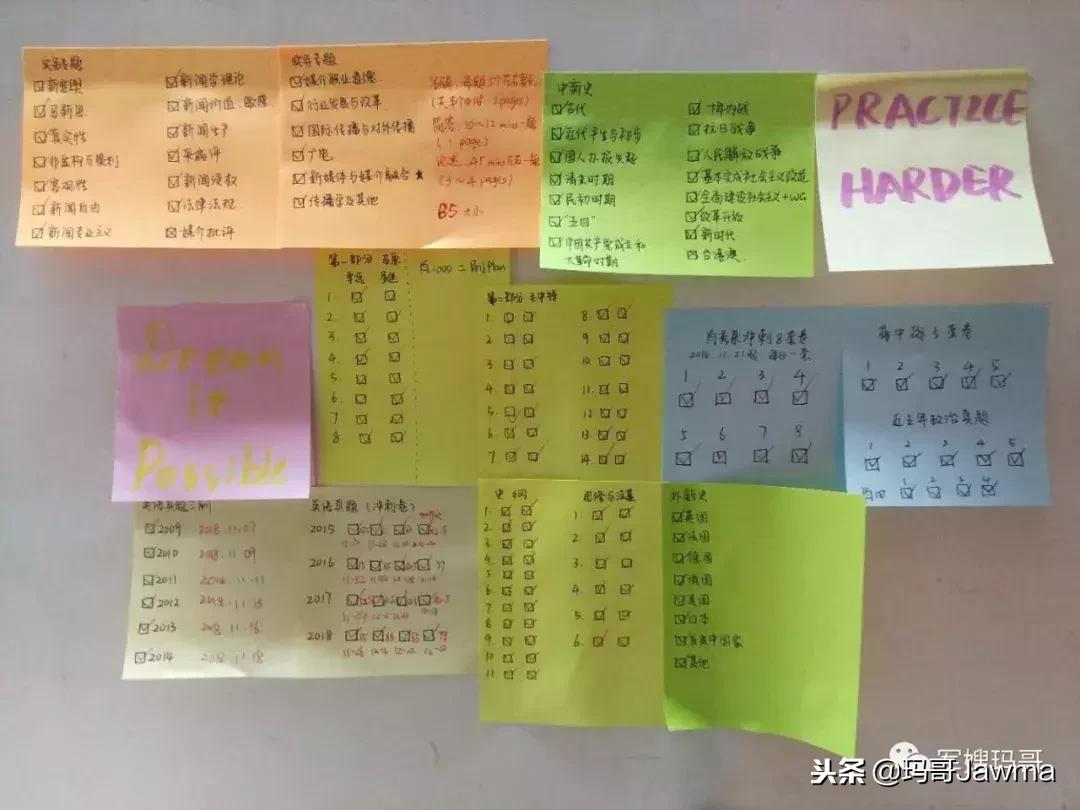 实务专题
新舆观
马新思
真实性
非虚构与煽利
客观性
新闻自由
新闻专业主义
新闻学理论
新闻价值、敏感
新闻生产
采编评
新闻侵权
法律法规
媒介批评
实务专题
媒介职业道德
行业发展与改革
国际传播与对外传播
广电
新媒体与媒介融合★
传播学及其他
简答、10~12 mins一题
(1 page)
论述、45 mins左右一题
(3~4 pages)
B5 大小
中新史
古代
近代产生与初步
国人办报兴起
清末时期
民初时期
"五四"
中国共产党成立和
大革命时期
十年内战
抗日战争
人民解放战争
基本完成社会主义改造
全面建设社会主义+WG
改革开放
新时代
台港澳
PRACTICE
HARDER
Dream
it
Possible
第一部分 马原
1.
2.
3.
4.
5.
6.
7
8
肖1000 = 刷Plan
第二部分 毛中特
1.
2.
3
4.
5.
6.
7.
8.
9.
10.
11.
12
13.
14
肖秀荣冲刺8套卷
2018.11.21起 每日一套
1 2 3 4
5 6 7 8
蒋中挺5套卷
1 2 3 4 5
近五年政治真题
1 2 3 4 5
肖四 1 2 3 4
英语真题二刷
2009 2018.11.07
2010 2018.11.09
2011 2018.11.11
2012 2018.11.13
2013 2018.11.16
2014 2018.11.18
英语真题(冲刺卷)
2015
2016
2017
2018
史纲
1.
2.
3.
4.
5.
6.
7.
8
9.
10
11
思修与法基
1.
2.
3.
4.
5.
6.
外新史
英国
法国
德国
俄国
美国
日本
发展中国家
其他
军嫂玛哥
头条 @玛哥Jawma